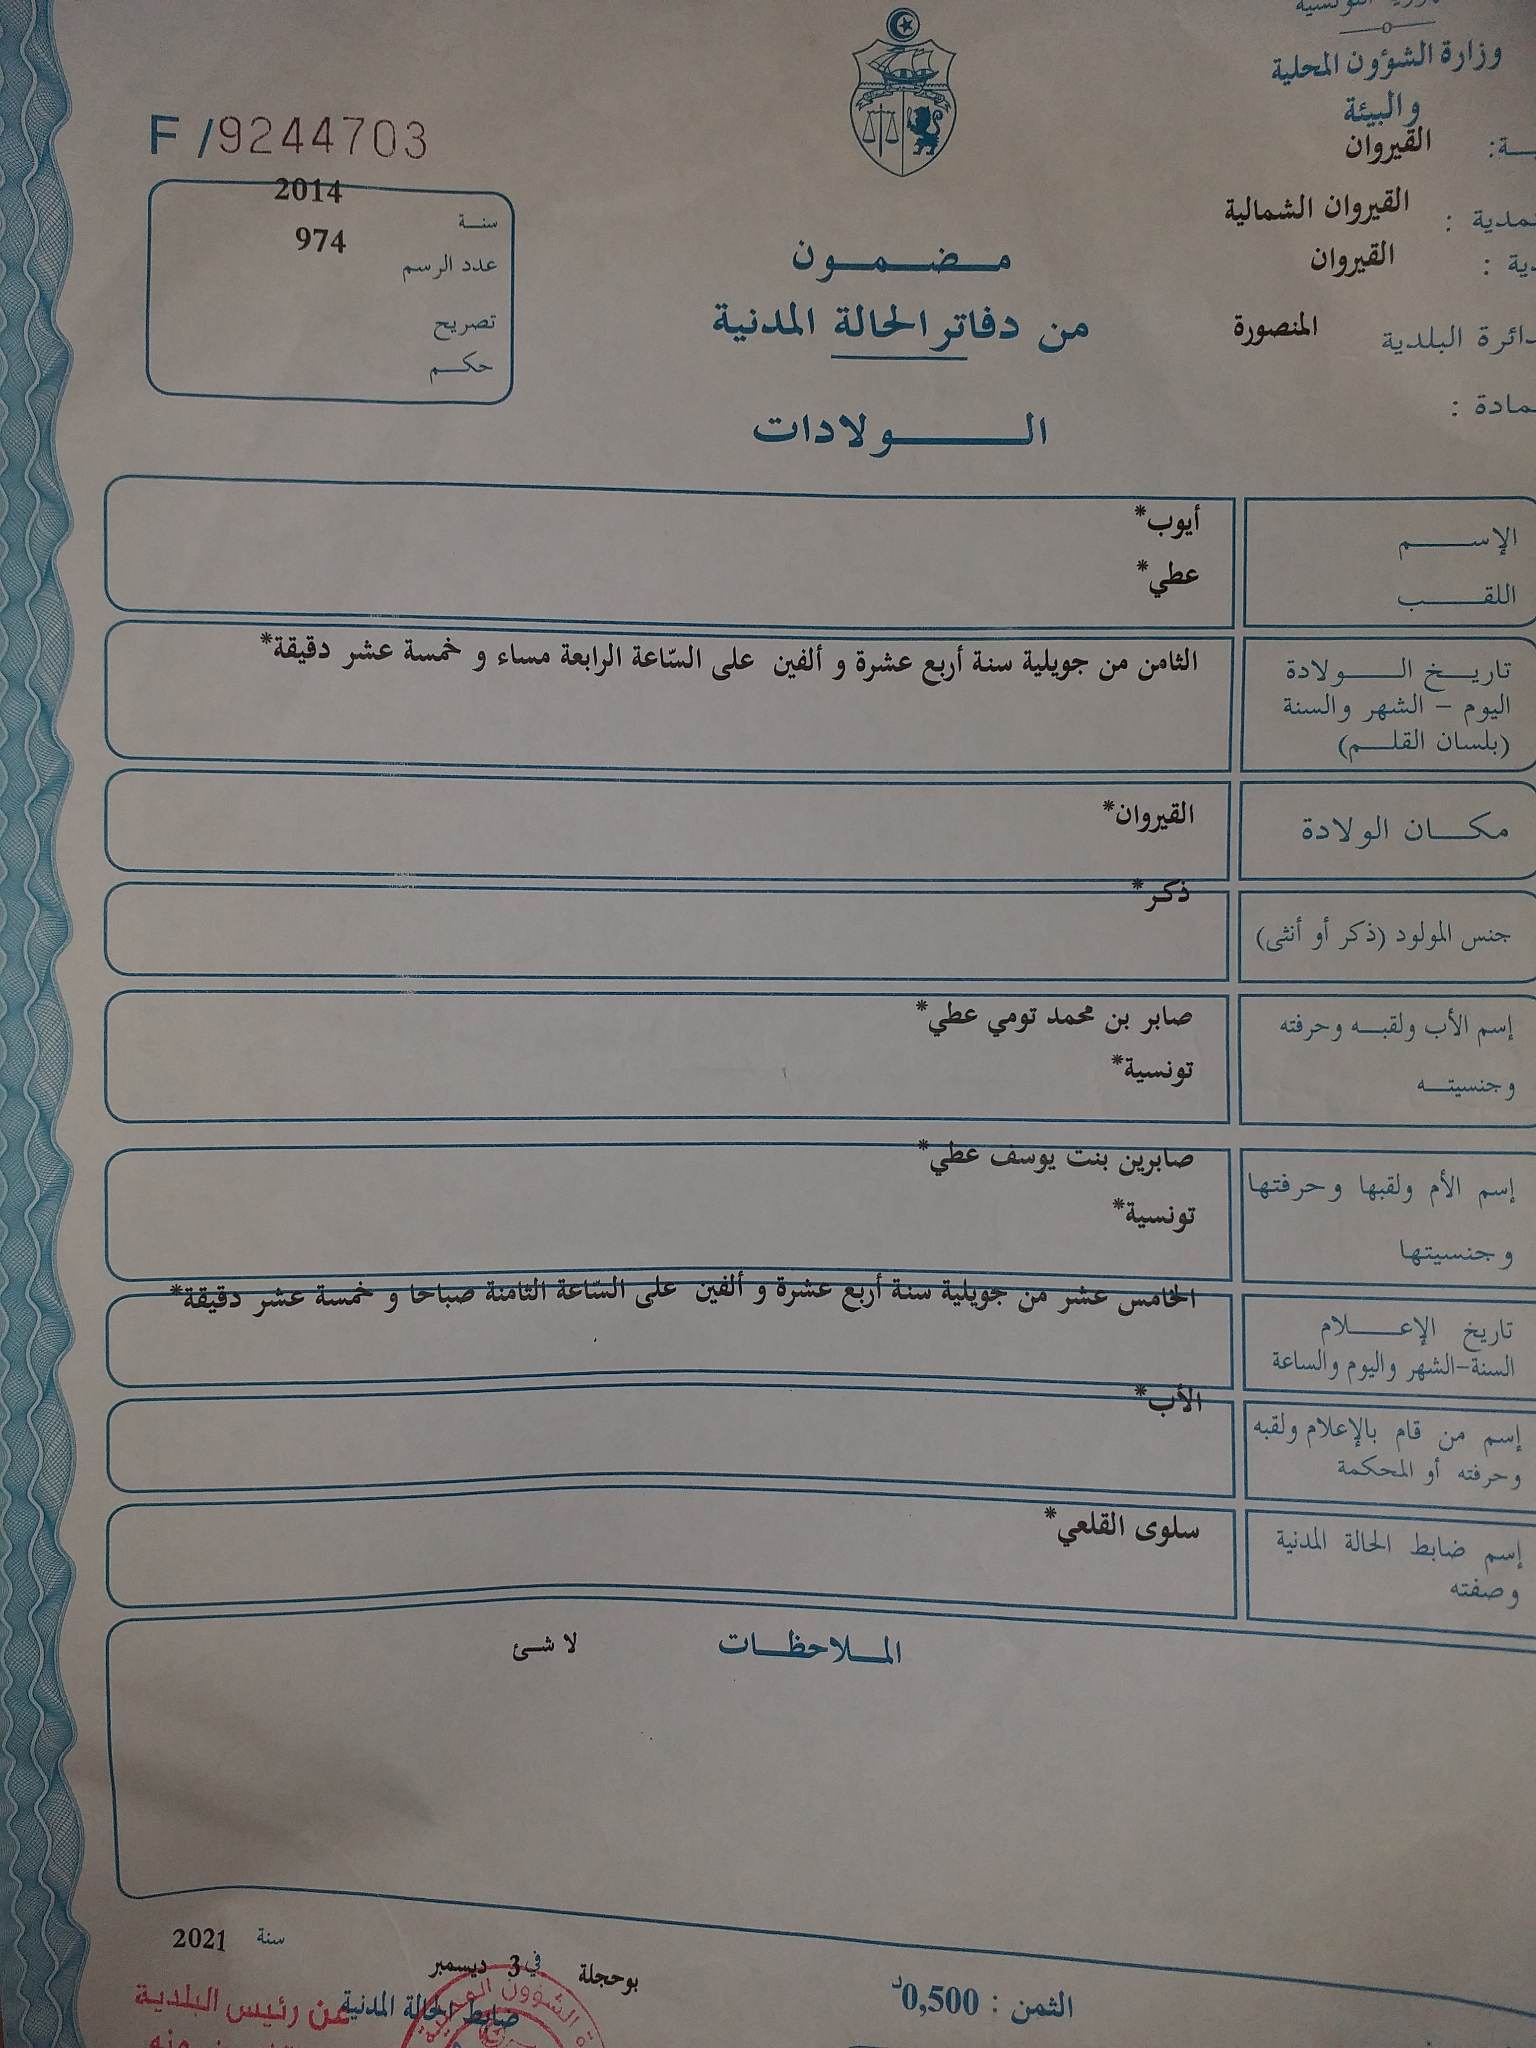 وزارة الشؤون المحلية
والبيئة
القيروان
القيروان الشمالية
القيروان
دائرة البلدية المنصورة
F /9244703
سنة 2014
عدد الرسم 974
تصريح
حكم
مضمون
من دفاتر الحالة المدنية
الولادات
الإسم أيوب*
اللقب عطي*
تاريخ الولادة
اليوم - الشهر والسنة
(بلسان القلم)
الثامن من جويلية سنة أربع عشرة و ألفين على السّاعة الرابعة مساء و خمسة عشر دقيقة*
مكان الولادة القيروان*
جنس المولود (ذكر أو أنثى) ذكر*
إسم الأب ولقبه وحرفته صابر بن محمد تومي عطي*
وجنسيته تونسية*
إسم الأم ولقبها وحرفتها صابرين بنت يوسف عطي*
وجنسيتها تونسية*
تاريخ الإعلام
السنة-الشهر واليوم والساعة
الخامس عشر من جويلية سنة أربع عشرة و ألفين على السّاعة الثامنة صباحا و خمسة عشر دقيقة*
إسم من قام بالإعلام ولقبه
وحرفته أو المحكمة
الأب*
إسم ضابط الحالة المدنية
وصفته
سلوى القلعي*
الملاحظات لا شئ
بوحجلة في 3 ديسمبر سنة 2021
الثمن : 0,500د
ضابط الحالة المدنية
عن رئيس البلدية